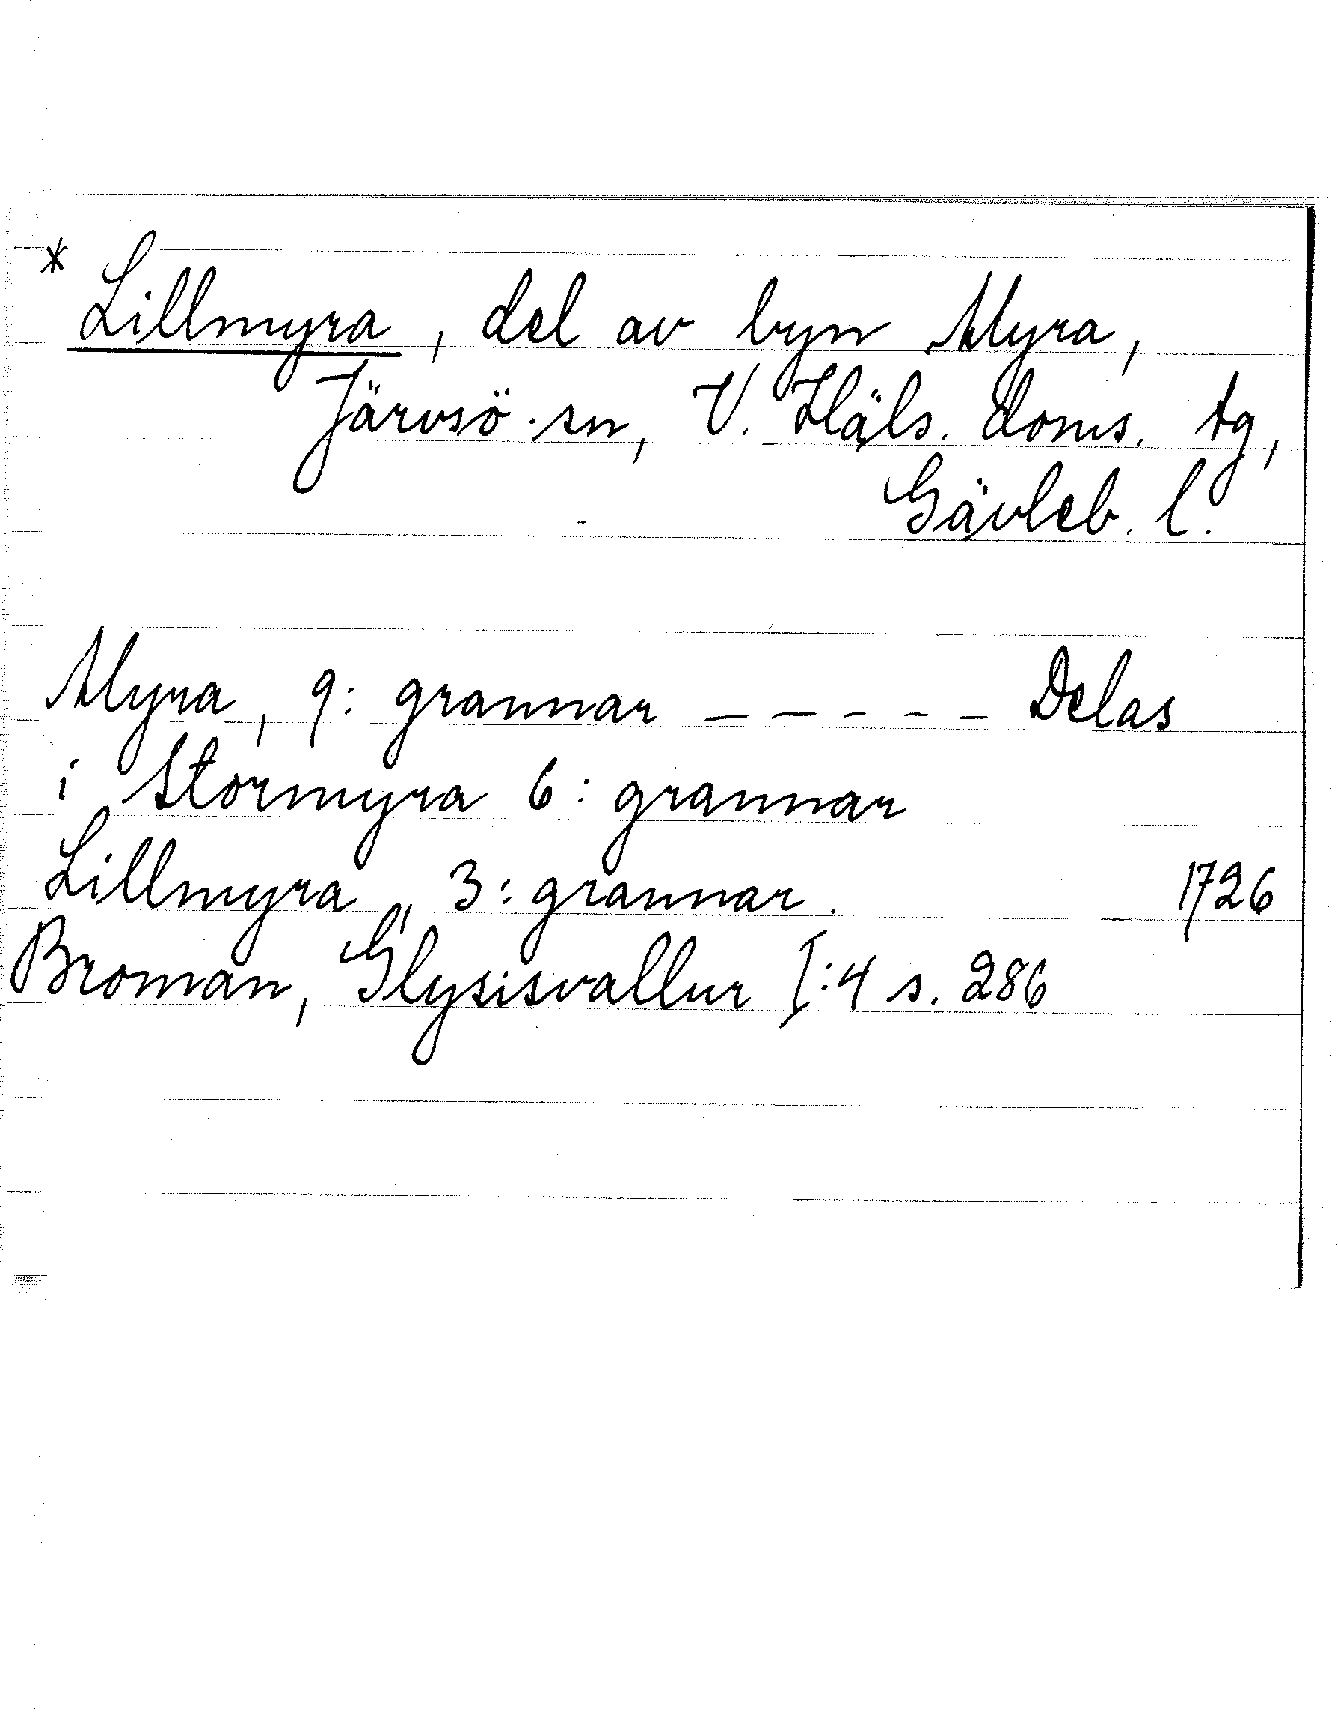 * Lillmyra, del av byn Myra,
Järvsö sn, V. Häls. doms. tg,
Gävleb. l.
Myra, 9: grannar – – – – – Delas
i Stormyra 6: grannar
Lillmyra, 3: grannar. 1726
Broman, Glysisvallur I:4 s. 286